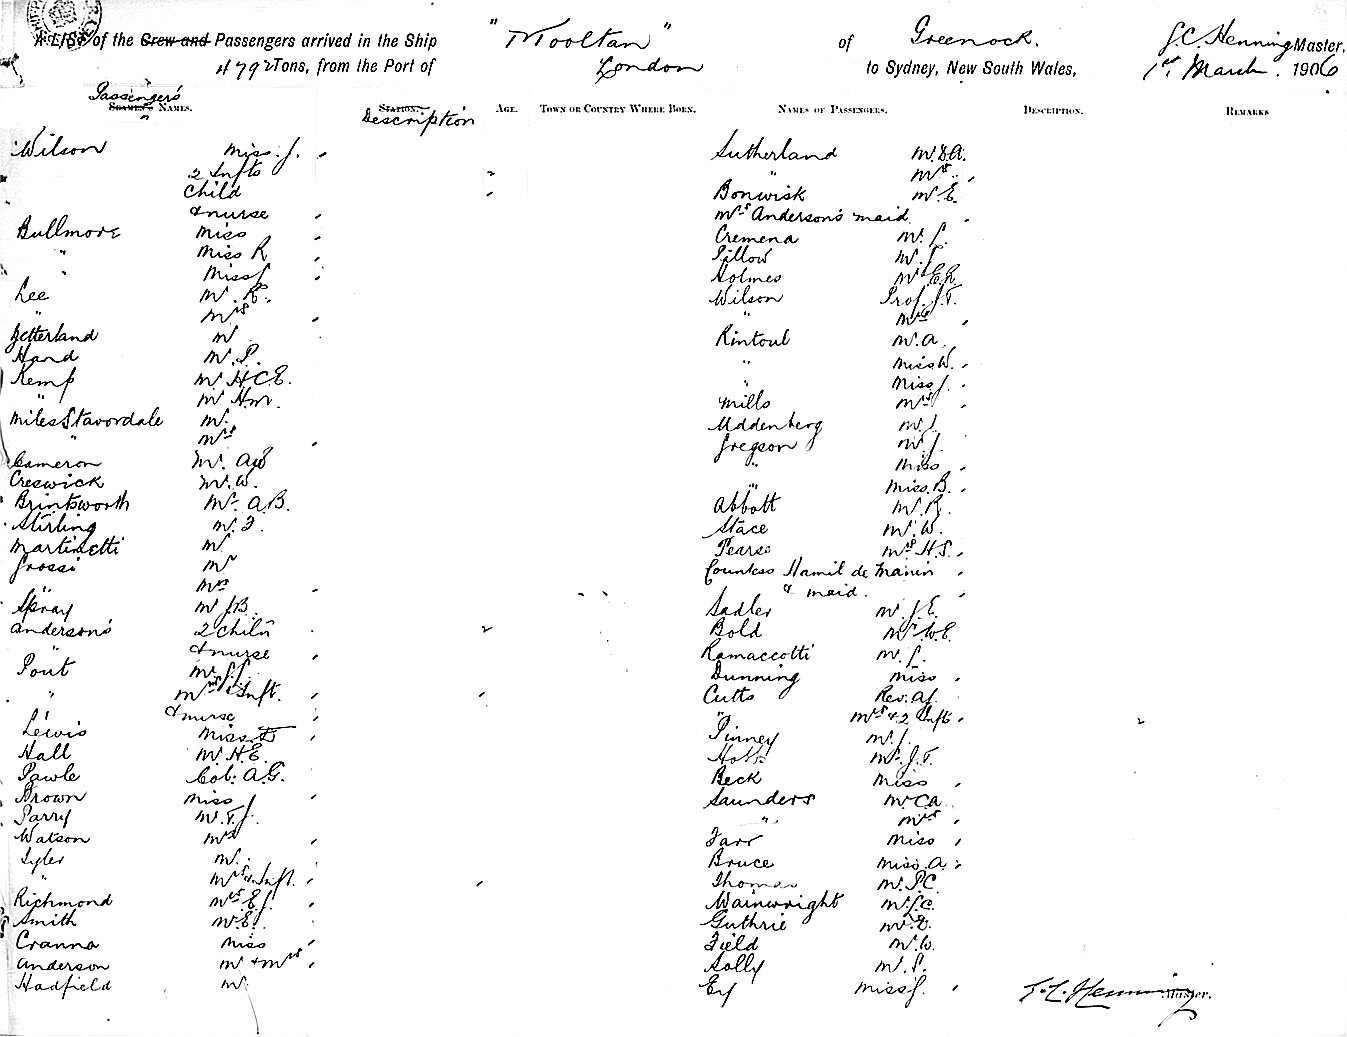 A LIST of the Crew and Passengers arrived in the Ship "Mooltan" of Greenock. J.C. Henning Master,
4792 Tons, from the Port of London to Sydney, New South Wales, 1st March. 1906
Passenger's
SEAMEN'S NAMES. STATION. AGE. TOWN OR COUNTRY WHERE BORN. NAMES OF PASSENGERS. DESCRIPTION. REMARKS
Description
Wilson Miss. J.
2 Infts 2
Child
& nurse
Bullmore Miss
" Miss R
" Miss J
Lee Mr. R.
" Mrs
Zetterland Mr
Hand Mr. P.
Kemp Mr H.C.E.
" Mr Hm.
Miles Stavordale Mr.
" Mrs
Cameron Mr. AW
Creswick Mr. W.
Brintsworth Mr. A.B.
Stirling Mr. F.
Martinetti Mr
Grossi Mr
" Mrs
Spray Mr J.B.
Anderson's 2 Childn 2
" & nurse
Pout Mr.
" Mrs & Inft.
& nurse
Lewis Miss
Hall Mr. H.E.
Pawle Col: A.G.
Brown Miss
Parry Mr. T.J.
Watson Mrs
Tyler Mr.
" Mrs & Inft.
Richmond Mrs E.J.
Smith Mr E.
Cranna Miss
Anderson Mr & Mrs
Hadfield Mr
Sutherland Mr. D.A.
" Mrs
Bonwick Mr. E.
Mrs Anderson's maid
Cremena Mr. L.
Pillow Mr. J.
Holmes Mr E.R.
Wilson Prof. J.T.
" Mrs
Rintoul Mr. A.
" Miss W.
" Miss J.
Mills Mrs
Uddenberg Mr. J.
Gregson Mr. J.
" Miss
" Miss. B.
Abbott Mr. R.
Stace Mr. W.
Pearse Mrs H.S.
Countess Hamil de Manin
& maid.
Sadler Mr. J.E.
Bold Mr. W.E.
Ramaccotti Mr. L.
Dunning Miss
Cutts Rev. A.J.
" Mrs & 2 Infts 2
Pinney Mr. J.
Holts Mr. J.T.
Beck Miss
Saunders Mr C.A.
" Mrs
Farr Miss
Bruce Miss. A.
Thomas Mr. P.C.
Wainwright Mr. J.C.
Guthrie Mr. D.
Field Mr. W.
Solly Mr. P.
Ey Miss J.
J.C. Henning Master.